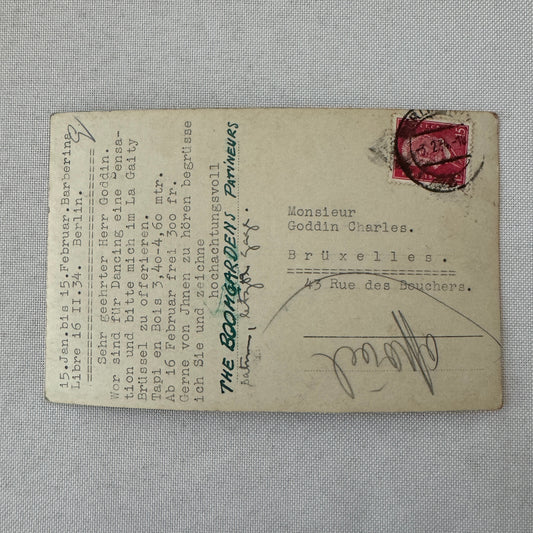 15.Jan.bis 15.Februar.Barberina
Libre 16 II.34. Berlin.
Sehr geehrter Herr Goddin.
Wor sind für Dancing eine Densa-
tion und bitte mich im La Gaity
Brüssel zu offerieren.
Tapi en Bois 3,40-4,60 mtr.
Ab 16 Februar frei 300 fr.
Gerne von Jhnen zu hören begrüsse
ich Sie und zeichne
hochachtungsvoll
THE BOOMGARDENS PATINEURS
Monsieur
Goddin Charles.
Brüxelles.
43 Rue des Bouchers.
15